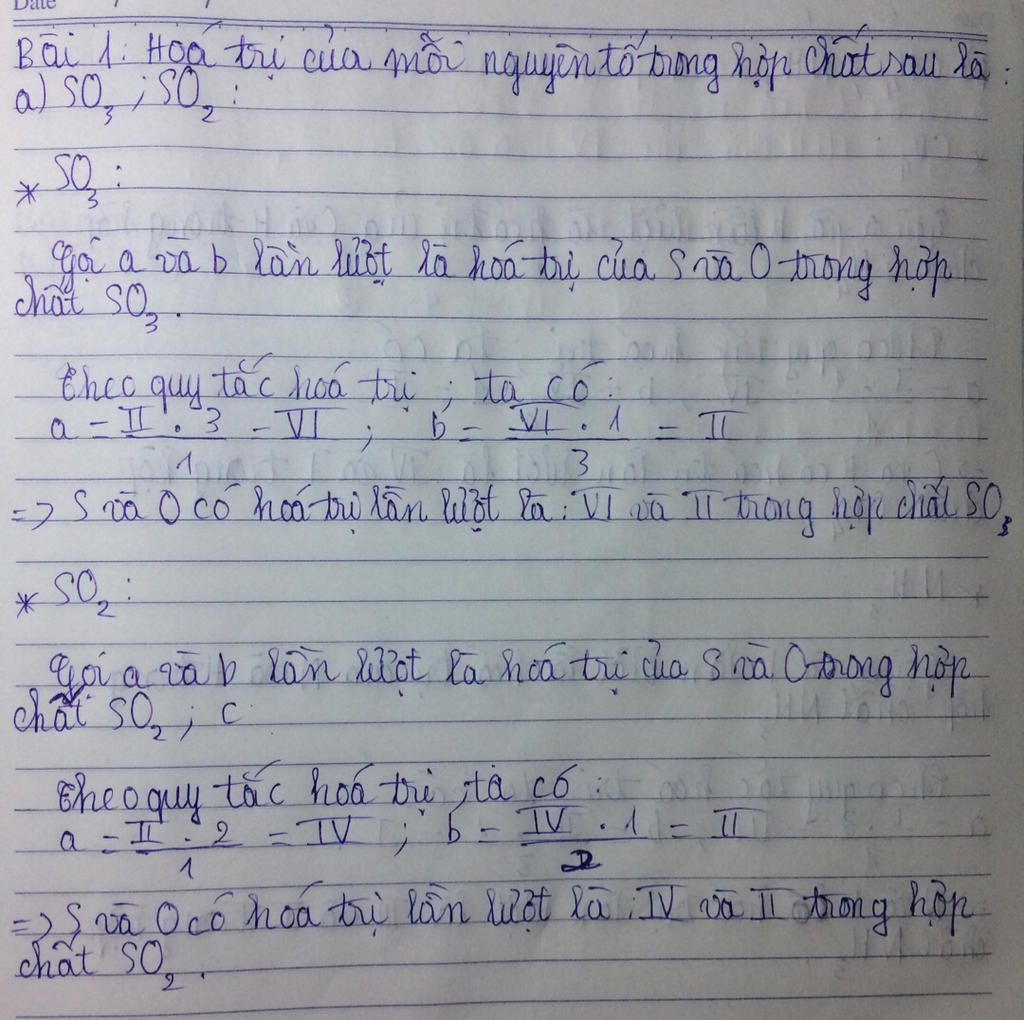 Date
Bài 1: Hoá trị của mỗi nguyên tố trong hợp chất sau là:
a) SO₃ ; SO₂ :
* SO₃ :
Gọi a và b lần lượt là hoá trị của S và O trong hợp
chất SO₃ .
Theo quy tắc hoá trị ; ta có :
a = II . 3 / 1 = VI ; b = VI . 1 / 3 = II
=> S và O có hoá trị lần lượt là : VI và II trong hợp chất SO₃
* SO₂ :
Gọi a và b lần lượt là hoá trị của S và O trong hợp
chất SO₂ ; c
Theo quy tắc hoá trị , ta có :
a = II . 2 / 1 = IV ; b = IV . 1 / 2 = II
=> S và O có hoá trị lần lượt là : IV và II trong hợp
chất SO₂ .